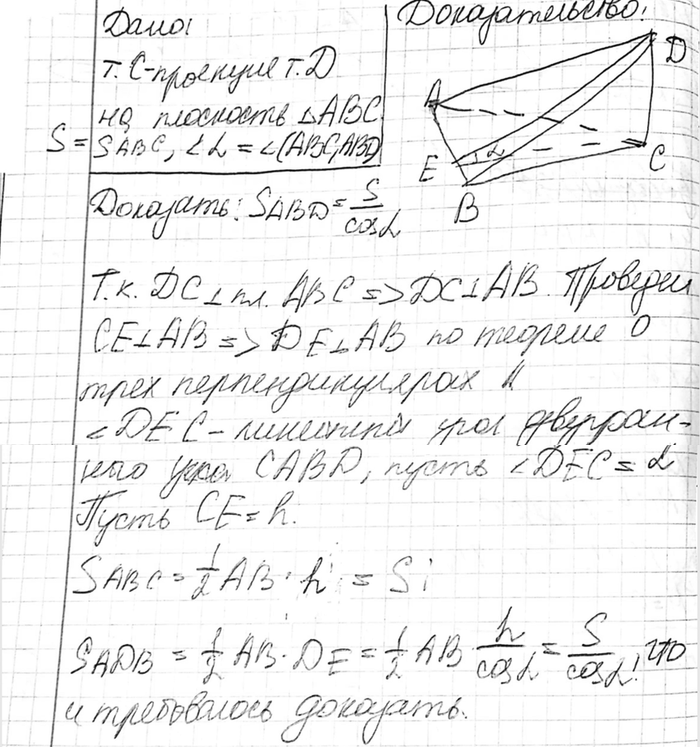 Дано:
т. С-проекция т. D
на плоскость △ABC.
S = SABC, ∠α = ∠(ABC, ABD)
Доказать: SABD = S/cosα
Доказательство:
A
D
E
α
C
B
Т.к. DC⊥пл. ABC => DC⊥AB. Проведем
CE⊥AB => DE⊥AB по теореме о
трех перпендикулярах и
∠DEC - линейный угол двугран-
ного угла CABD, пусть ∠DEC = α
Пусть CE = h.
SABC = 1/2 AB · h = S;
SADB = 1/2 AB · DE = 1/2 AB · h/cosα = S/cosα, что
и требовалось доказать.